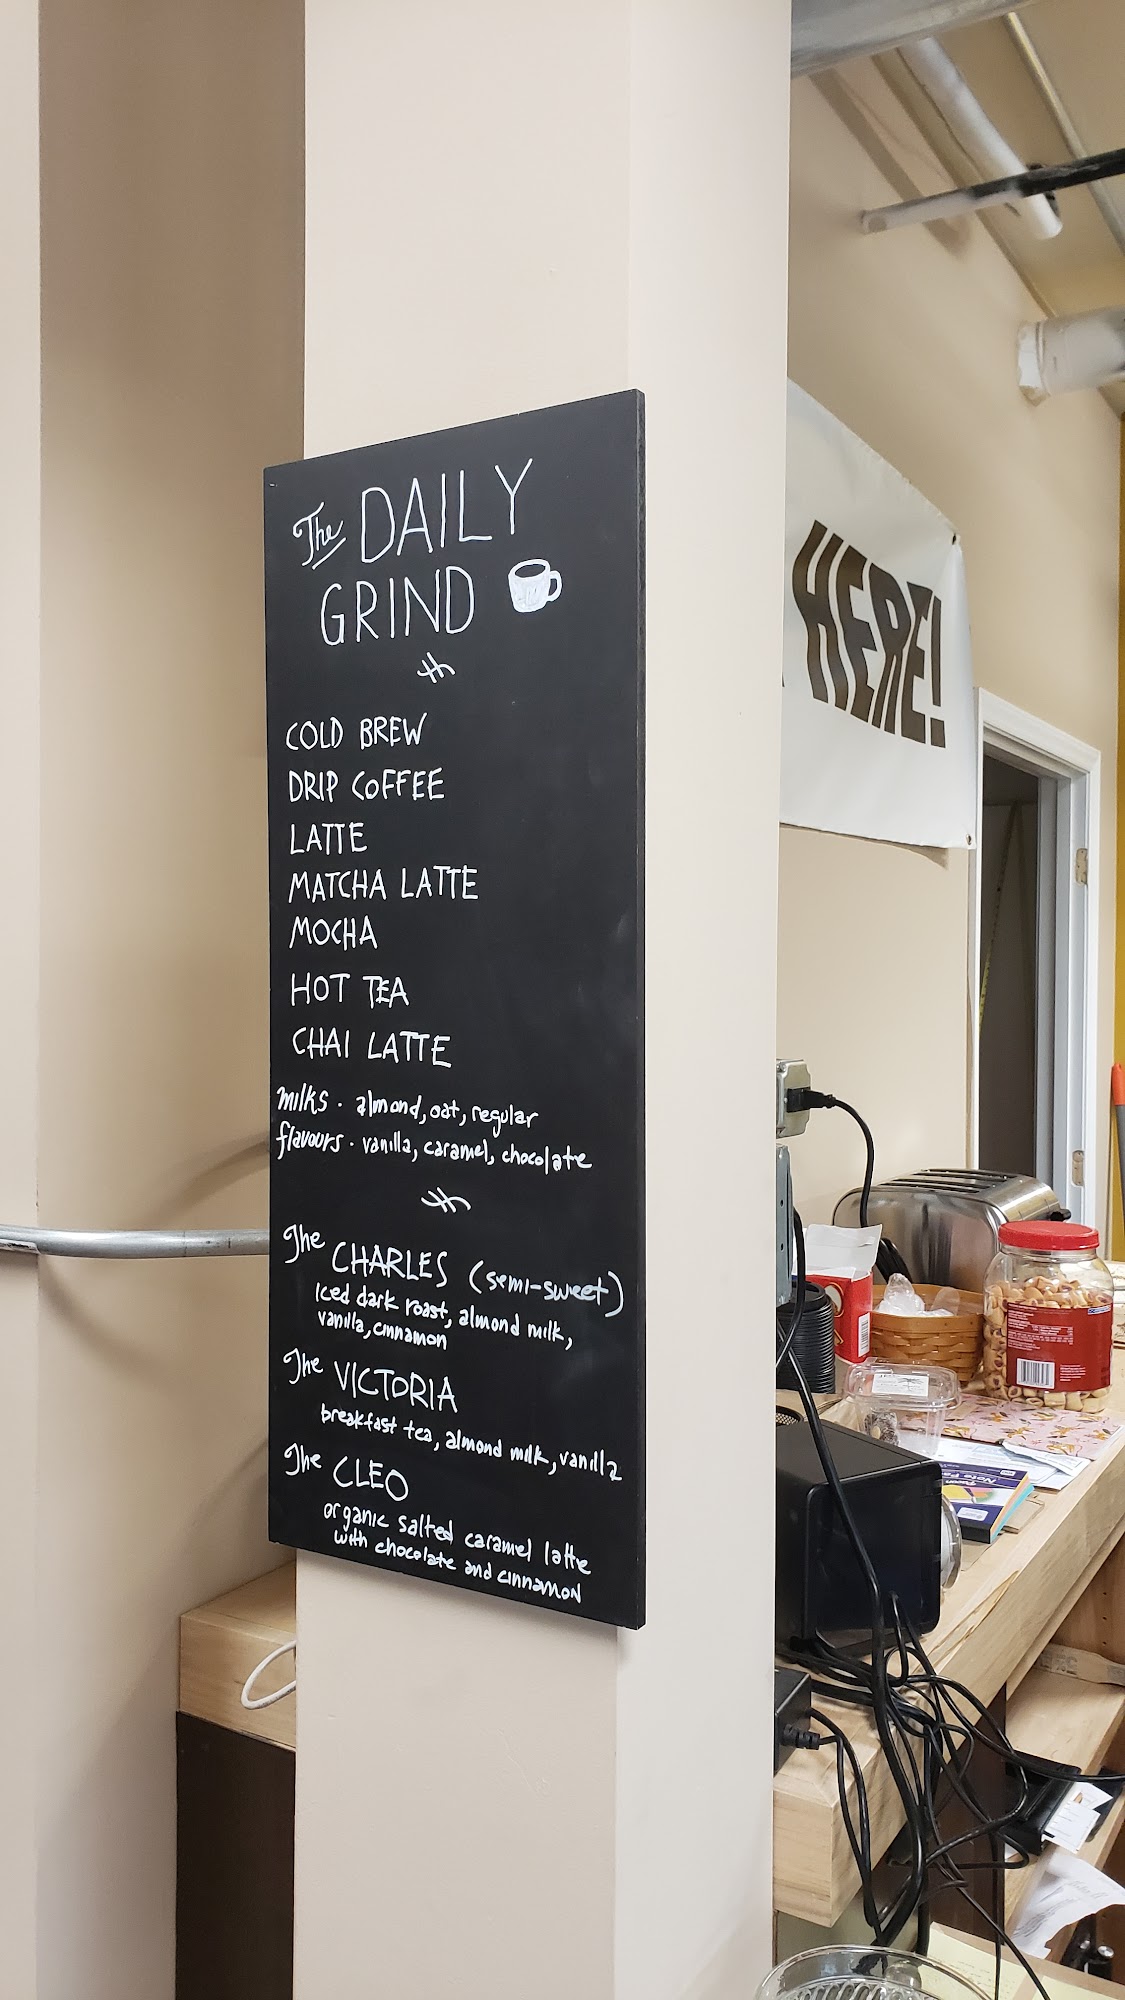 The DAILY
GRIND
COLD BREW
DRIP COFFEE
LATTE
MATCHA LATTE
MOCHA
HOT TEA
CHAI LATTE
milks · almond, oat, regular
flavours · vanilla, caramel, chocolate
The CHARLES (semi-sweet)
iced dark roast, almond milk,
vanilla, cinnamon
The VICTORIA
breakfast tea, almond milk, vanilla
The CLEO
organic salted caramel latte
with chocolate and cinnamon
HERE!
Note Pa